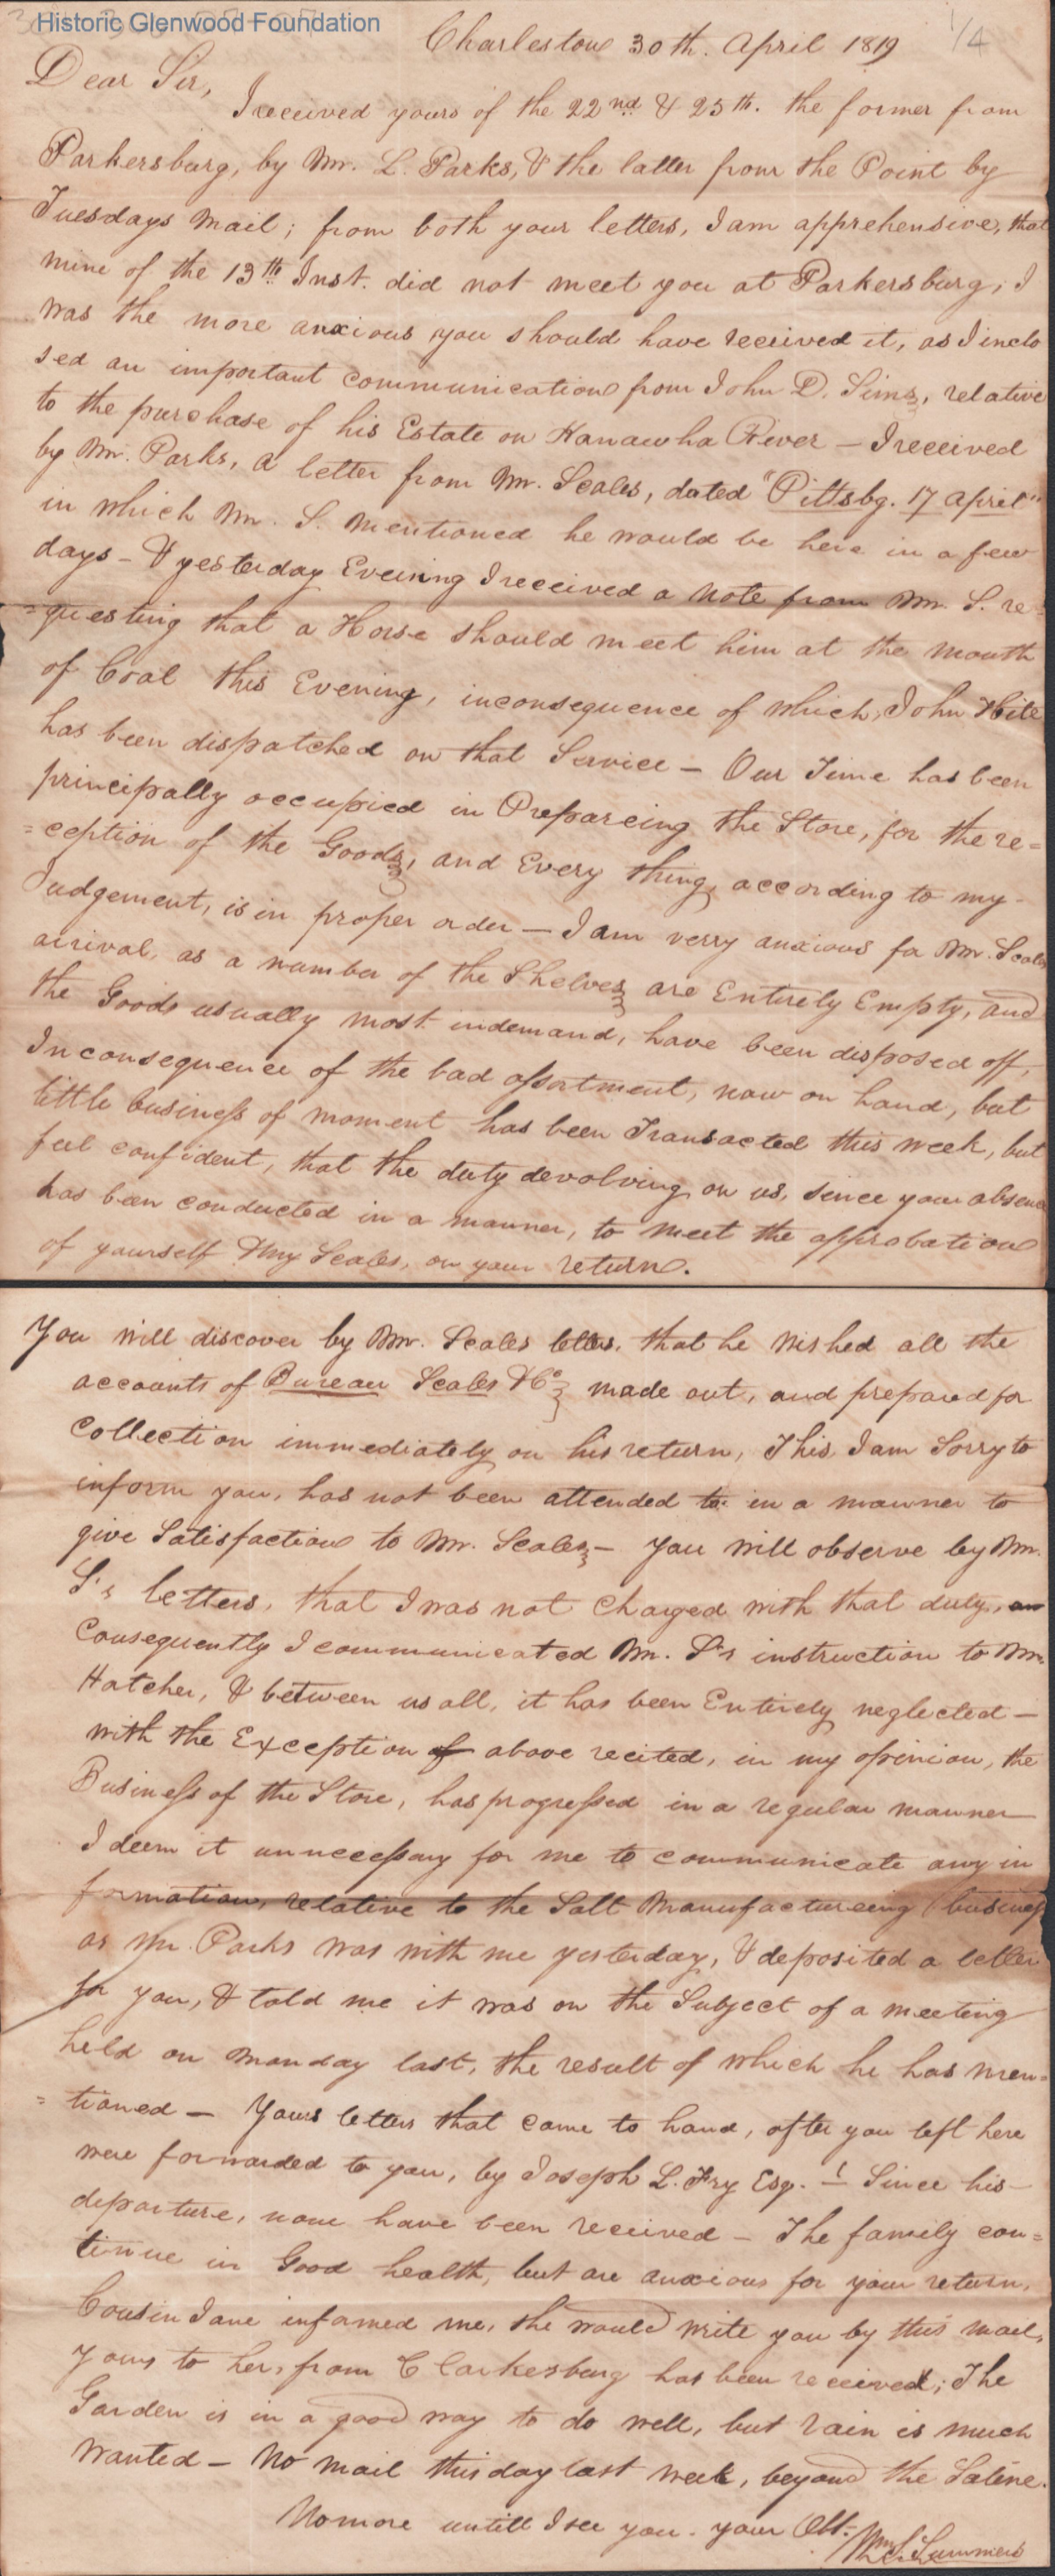 Historic Glenwood Foundation
1/4
Charleston 30th. April 1819
Dear Sir,
I received yours of the 22nd & 25th. the former from
Parkersburg, by Mr. L. Parks, & the latter from the Point by
Tuesdays Mail; from both your letters, I am apprehensive, that
mine of the 13th Inst. did not meet you at Parkersburg, I
was the more anxious you should have received it, as I inclo
sed an important Communication from John D. Sims, relative
to the purchase of his Estate on Kanawha River – I received
by Mr. Parks, a letter from Mr. Scales, dated "Pittsbg. 17 April"
in which Mr. S. mentioned he would be here in a few
days – & yesterday Evening I received a Note from Mr. S. re=
=questing that a Horse should meet him at the Mouth
of Coal this Evening, inconsequence of which, John Hite
has been dispatched on that Service – Our Time has been
principally occupied in Prepareing the Store, for the re=
=ception of the Goods, and Every thing, according to my
Judgement, is in proper order – I am verry anxious for Mr. Scales
arrival, as a number of the Shelves are Entirely Empty, and
the Goods usually most indemand, have been disposed off,
Inconsequence of the bad assortment, now on hand, but
little business of moment has been Transacted this week, but
feel confident, that the duty devolving on us, since your absence
has been conducted in a manner, to meet the approbation
of yourself & Scales, on your return.
You will discover by Mr. Scales letter, that he wished all the
accounts of Bureau Scales & Co made out, and prepared for
Collection immediately on his return, This, I am Sorry to
inform you, has not been attended to in a manner to
give Satisfaction to Mr. Scales – You will observe by Mr.
S's letters, that I was not Charged with that duty,
Consequently I communicated Mr. S's instruction to Mr.
Hatcher, & between us all, it has been Entirely neglected –
with the Exception of above recited, in my opinion, the
Business of the Store, has progressed in a regular manner
I deem it unnecessary for me to communicate any in
formation, relative to the Salt Manufactureing business
as Mr. Parks was with me yesterday, & deposited a letter
for you, & told me it was on the Subject of a meeting
held on Monday last, the result of which he has men=
=tioned – Yours letters that came to hand, after you left here
were forwarded to you, by Joseph L. Fry Esq. – Since his
departure, none have been received – The family con=
tinue in Good health, but are anxious for your return,
Cousin Jane informed me, she would write you by this mail,
Yours to her, from Clarkesburg has been received; The
Garden is in a good way to do well, but rain is much
wanted – No Mail this day last week, beyond the Saline.
No more untill I see you. your Obt.
Wm. S. Summers